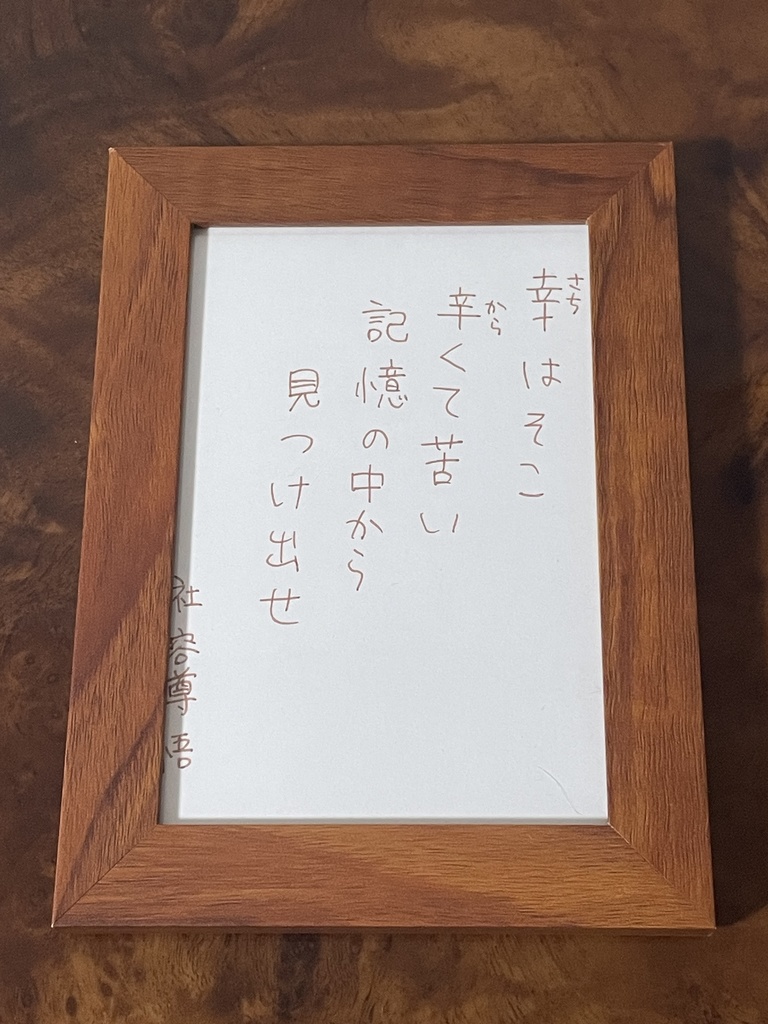 幸はそこ
さち
辛くて苦い
から
記憶の中から
見つけ出せ
社容尊悟